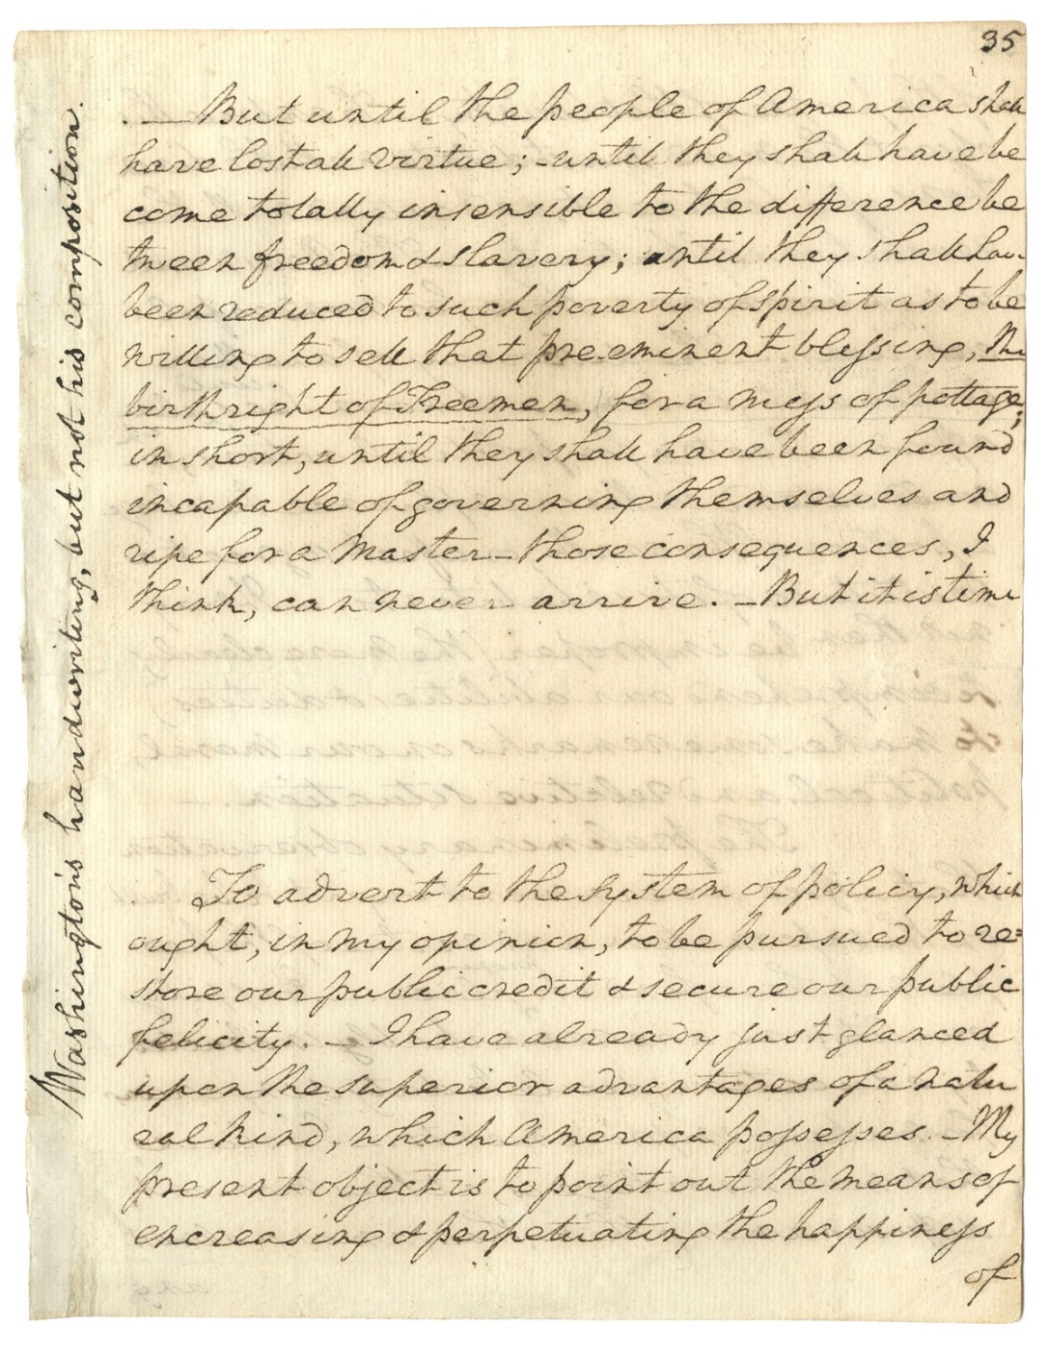 35
. — But until the people of America shall
have lost all virtue; - until they shall have be
come totally insensible to the difference be
tween freedom & slavery; until they shall hav
been reduced to such poverty of spirit as to be
willing to sell that pre-eminent blessing, the
birthright of Freemen, for a mess of pottage;
in short, until they shall have been found
incapable of governing themselves and
ripe for a master - those consequences, I
think, can never arrive. - But it is time
To advert to the system of policy, which
ought, in my opinion, to be pursued to re=
store our public credit & secure our public
felicity. - I have already just glanced
upon the superior advantages of a natu
ral kind, which America possesses. - My
present object is to point out the means of
encreasing & perpetuating the happiness
of
Washington's handwriting, but not his composition.